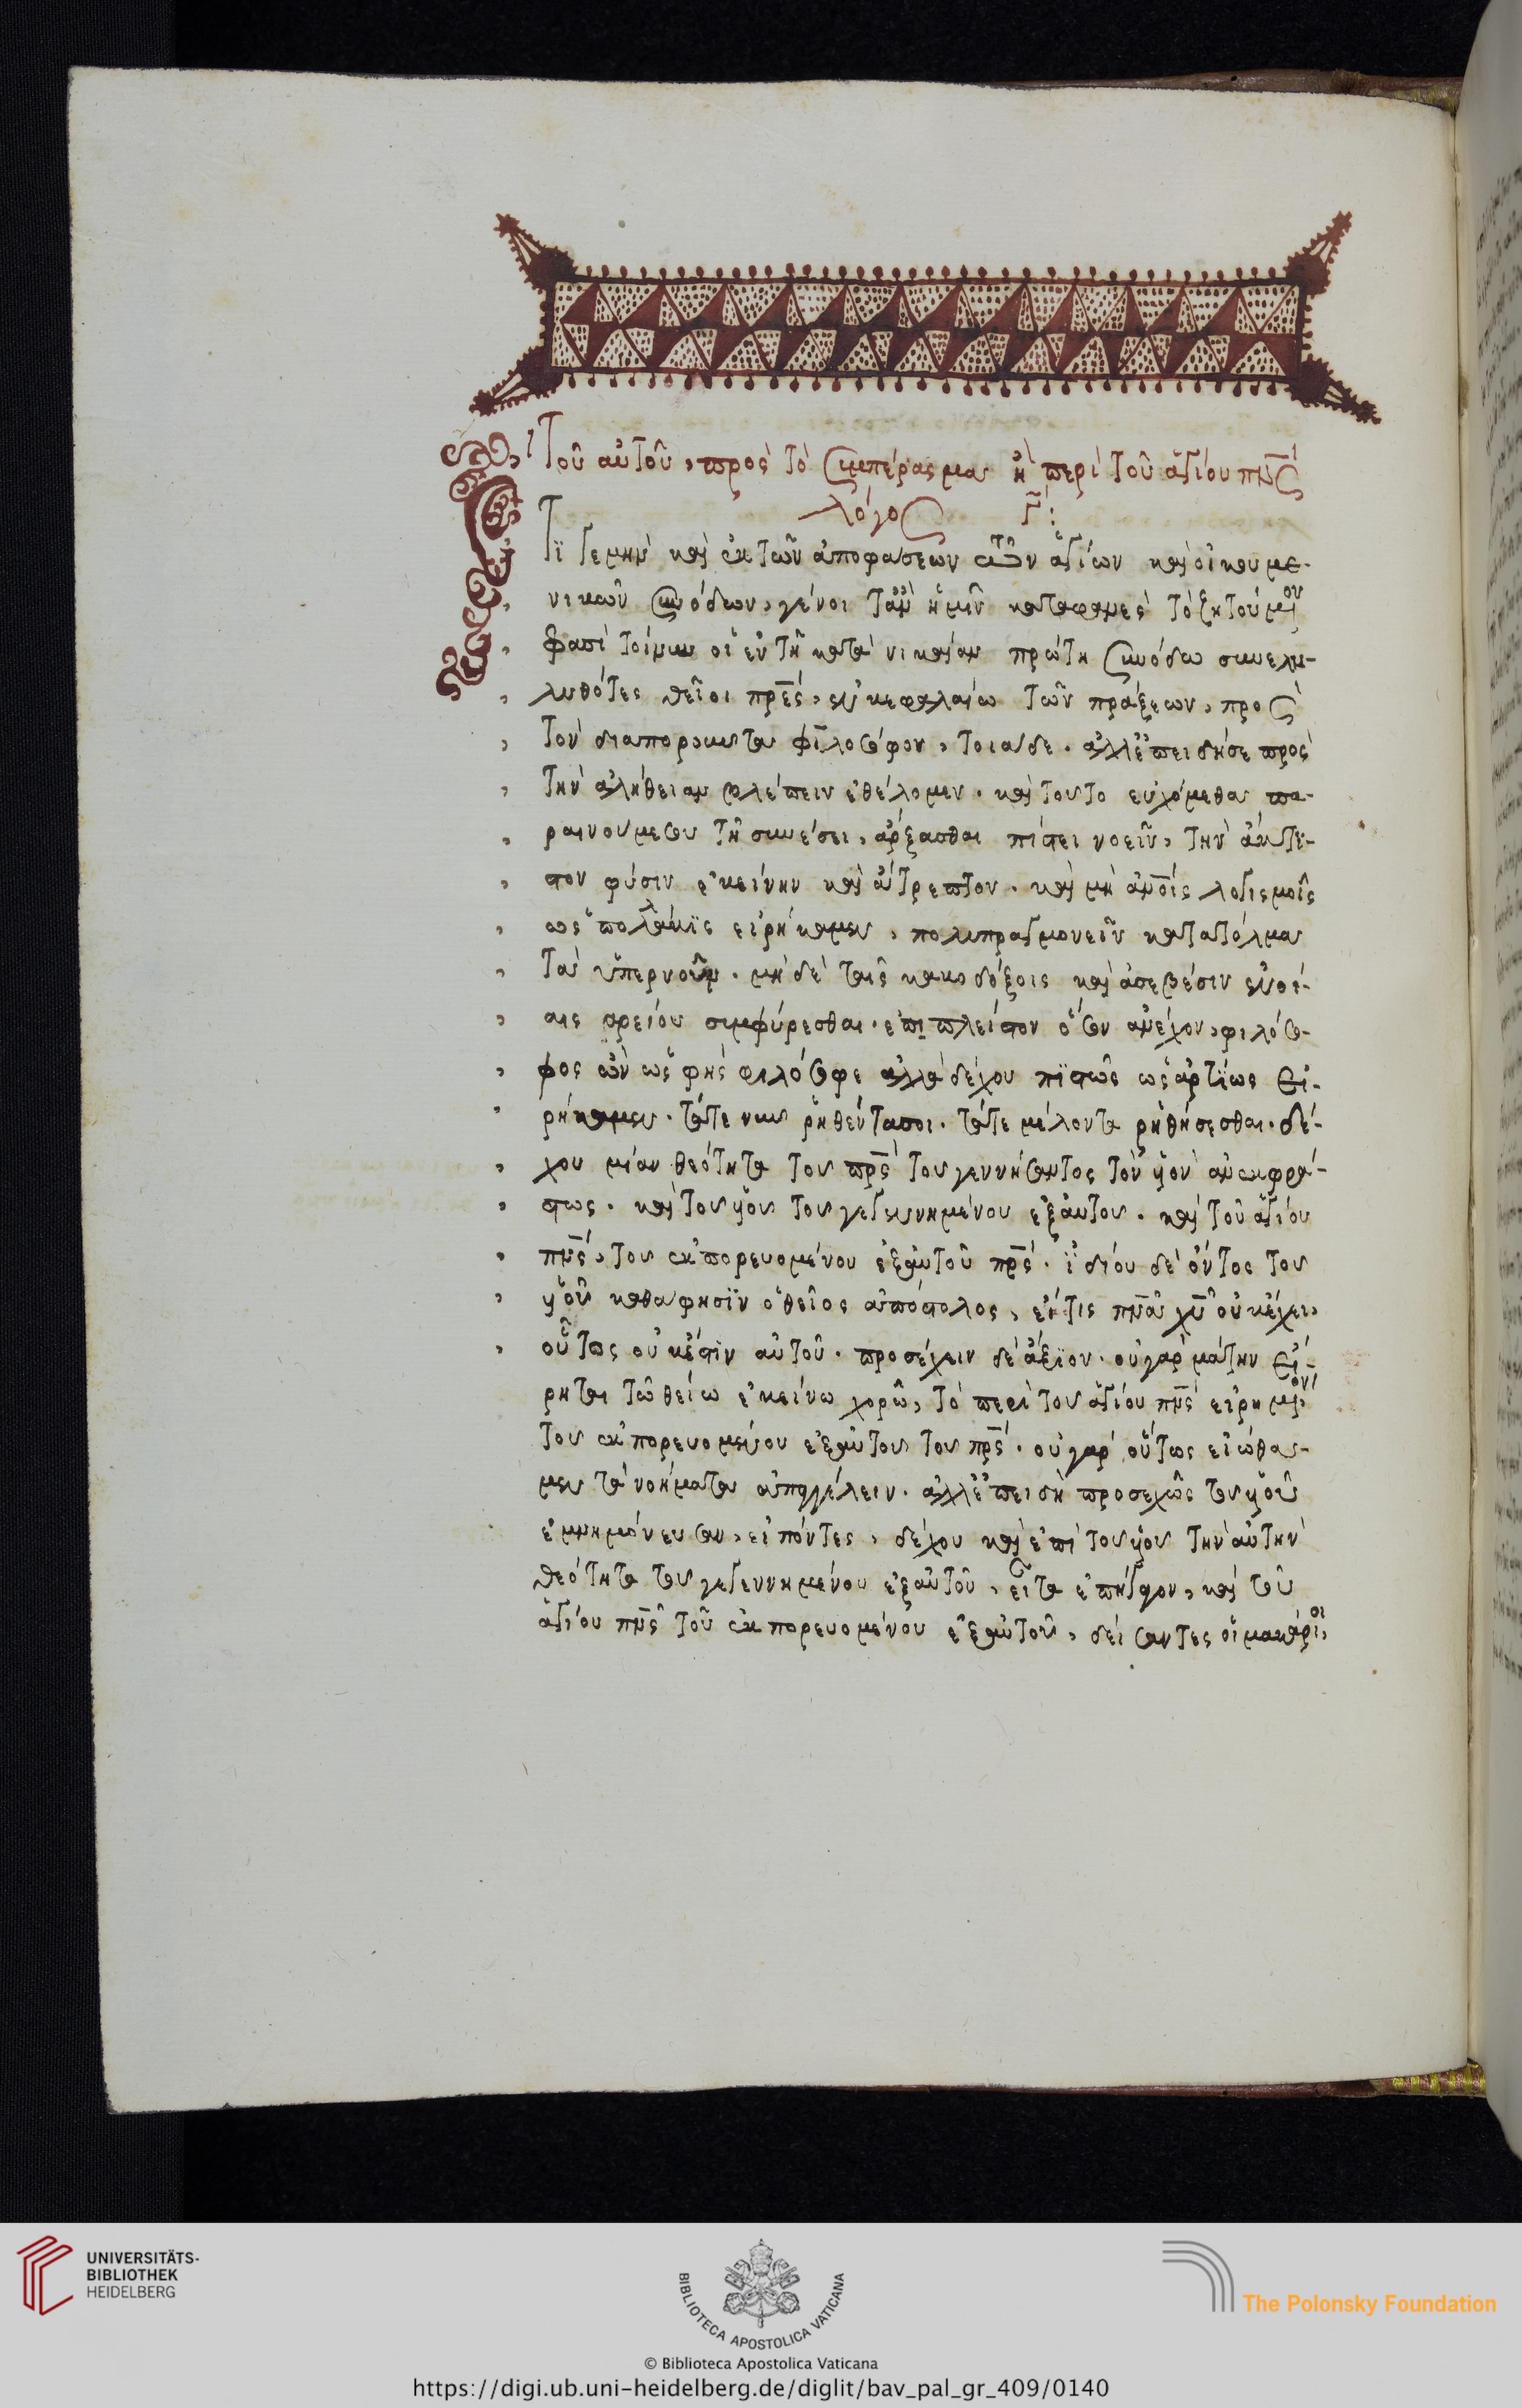 Τοῦ αὐτοῦ, πρὸς τὸ συμπέρασμα ἢ περὶ τοῦ ἁγίου πν̅ς
λόγος γ̅:
Τί γε μὴν καὶ ἐκ τῶν ἀποφάσεων τῶν ἁγίων καὶ οἰκουμε-
νικῶν συνόδων, γένοιτ' ἂν ἡμῖν καταφανὲς τὸ ζητούμενον
φασὶ τοίνυν οἱ ἐν τῆ κατὰ νικαίαν πρώτη συνόδω συνελη-
λυθότες θεῖοι πρ̅ες, ἐν κεφαλαίω τῶν πράξεων, πρὸς
τὸν διαπορουντα φιλόσοφον, τοιάδε. ἀλλ' ἐπειδή σε πρὸς
τὴν ἀλήθειαν βλέπειν ἐθέλομεν. καὶ τουτο εὐχόμεθα πα-
ραινουμεν σου τῆ συνέσει, ἄρξασθαι πίστει νοεῖν, τὴν ἄκτι-
στον φύσιν ἐκείνην καὶ ἄτρεπτον. καὶ μὴ ἀν̅οις λογισμοῖς
ὡς πολάκϊς εἰρήκαμεν, πολυπραγμονεῖν κατατόλμα
τὰ ὑπερνοῦν. μὴ δὲ ταῖς κακοδόξοις καὶ ἀσεβέσιν ἐννοί-
αις ἀρείου συμφύρεσθαι. ἐπιπλείστον ὅσον ἀνέχου, φιλόσο-
φος ὢν ὡς φὴς φιλόσοφε ἀλλὰ δέχου πϊστῶς ὡς ἀρτίως εἰ-
ρήκαμεν. τάτε νυν ῥηθέντα σοι. τάτε μέλοντα ῥηθήσεσθαι. δέ-
χου μίαν θεότητα του πρ̅ς του γεννήσαντος τὸν υἱὸν ἀνεκφρά-
στως. καὶ του υἱου του γεγεννημένου ἐξ αὐτου. καὶ τοῦ ἁγίου
πν̅ς, του ἐκπορευομένου ἐξ αὐτοῦ πρ̅ς. ἰδίου δὲ ὄντος του
υἱοῦ καθα φησϊν ὁ θεῖος ἀπόστολος, εἴ τις πν̅α χυ̅ οὐκ ἔχει,
οὗτος οὐκ ἔστϊν αὐτοῦ. προσέχειν δὲ ἄξϊον. οὐ γὰρ μάτην εἴ-
ρηται τῶ θείω ἐκείνω χορῶ, τὸ περὶ του ἁγίου πν̅ς εἰρημένον
του ἐκπορευομένου ἐξ αὐτου του πρ̅ς. οὐ γὰρ οὕτως εἰώθα-
μεν τὰ νοήματα ἀπαγγέλειν. ἀλλ' ἐπειδὴ προσεχῶς του υἱοῦ
ἐμνημόνευσαν, εἰπόντες, δέχου καὶ ἐπὶ του υἱου τὴν αὐτὴν
θεότητα του γεγεννημένου ἐξ αὐτοῦ, εἶτα ἐπήγαγον, καὶ τοῦ
ἁγίου πν̅ς τοῦ ἐκπορευομένου ἐξ αὐτοῦ, δείσαντες οἱ μακάριοι,
UNIVERSITÄTS-
BIBLIOTHEK
HEIDELBERG
BIBLIOTECA APOSTOLICA VATICANA
The Polonsky Foundation
© Biblioteca Apostolica Vaticana
https://digi.ub.uni-heidelberg.de/diglit/bav_pal_gr_409/0140